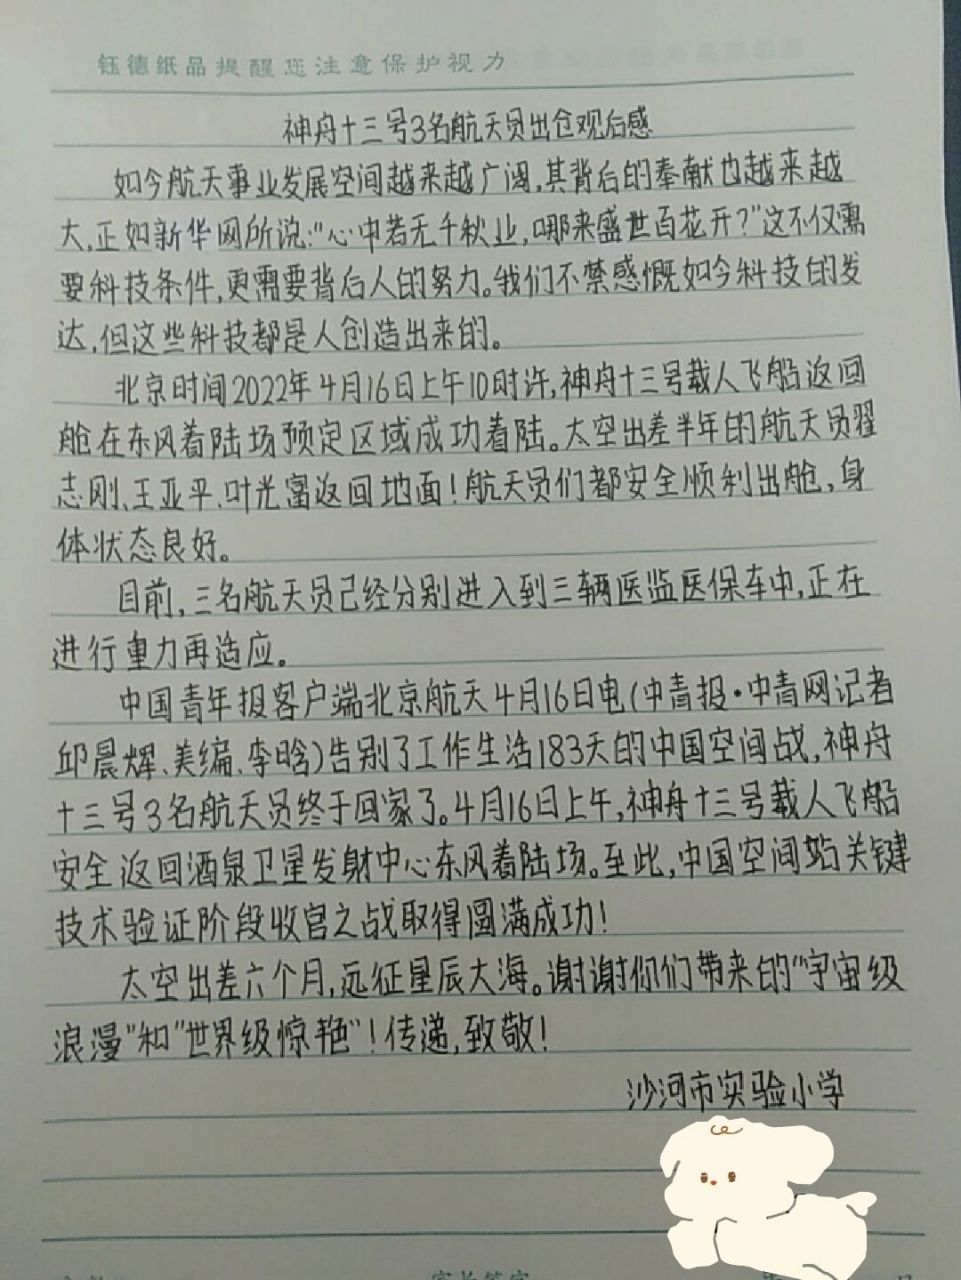 钰德纸品提醒您注意保护视力
神舟十三号3名航天员出仓观后感
如今航天事业发展空间越来越广阔,其背后的奉献也越来越
大,正如新华网所说:"心中若无千秋业,哪来盛世百花开?"这不仅需
要科技条件,更需要背后人的努力。我们不禁感慨如今科技的发
达,但这些科技都是人创造出来的。
北京时间2022年4月16日上午10时许,神舟十三号载人飞船返回
舱在东风着陆场预定区域成功着陆。太空出差半年的航天员翟
志刚、王亚平、叶光富返回地面!航天员们都安全顺利出舱,身
体状态良好。
目前,三名航天员已经分别进入到三辆医监医保车中,正在
进行重力再适应。
中国青年报客户端北京航天4月16日电(中青报·中青网记者
邱晨辉、美编、李晗)告别了工作生活183天的中国空间战,神舟
十三号3名航天员终于回家了。4月16日上午,神舟十三号载人飞船
安全返回酒泉卫星发射中心东风着陆场。至此,中国空间站关键
技术验证阶段收官之战取得圆满成功!
太空出差六个月,远征星辰大海。谢谢你们带来的"宇宙级
浪漫"和"世界级惊艳"!传递,致敬!
沙河市实验小学
家长签字